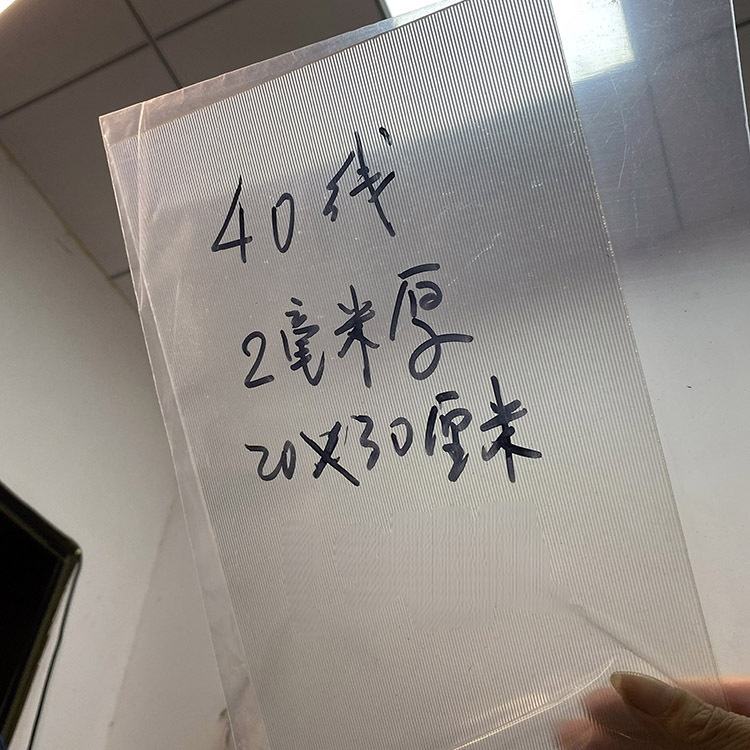 40线
2毫米厚
20X30厘米